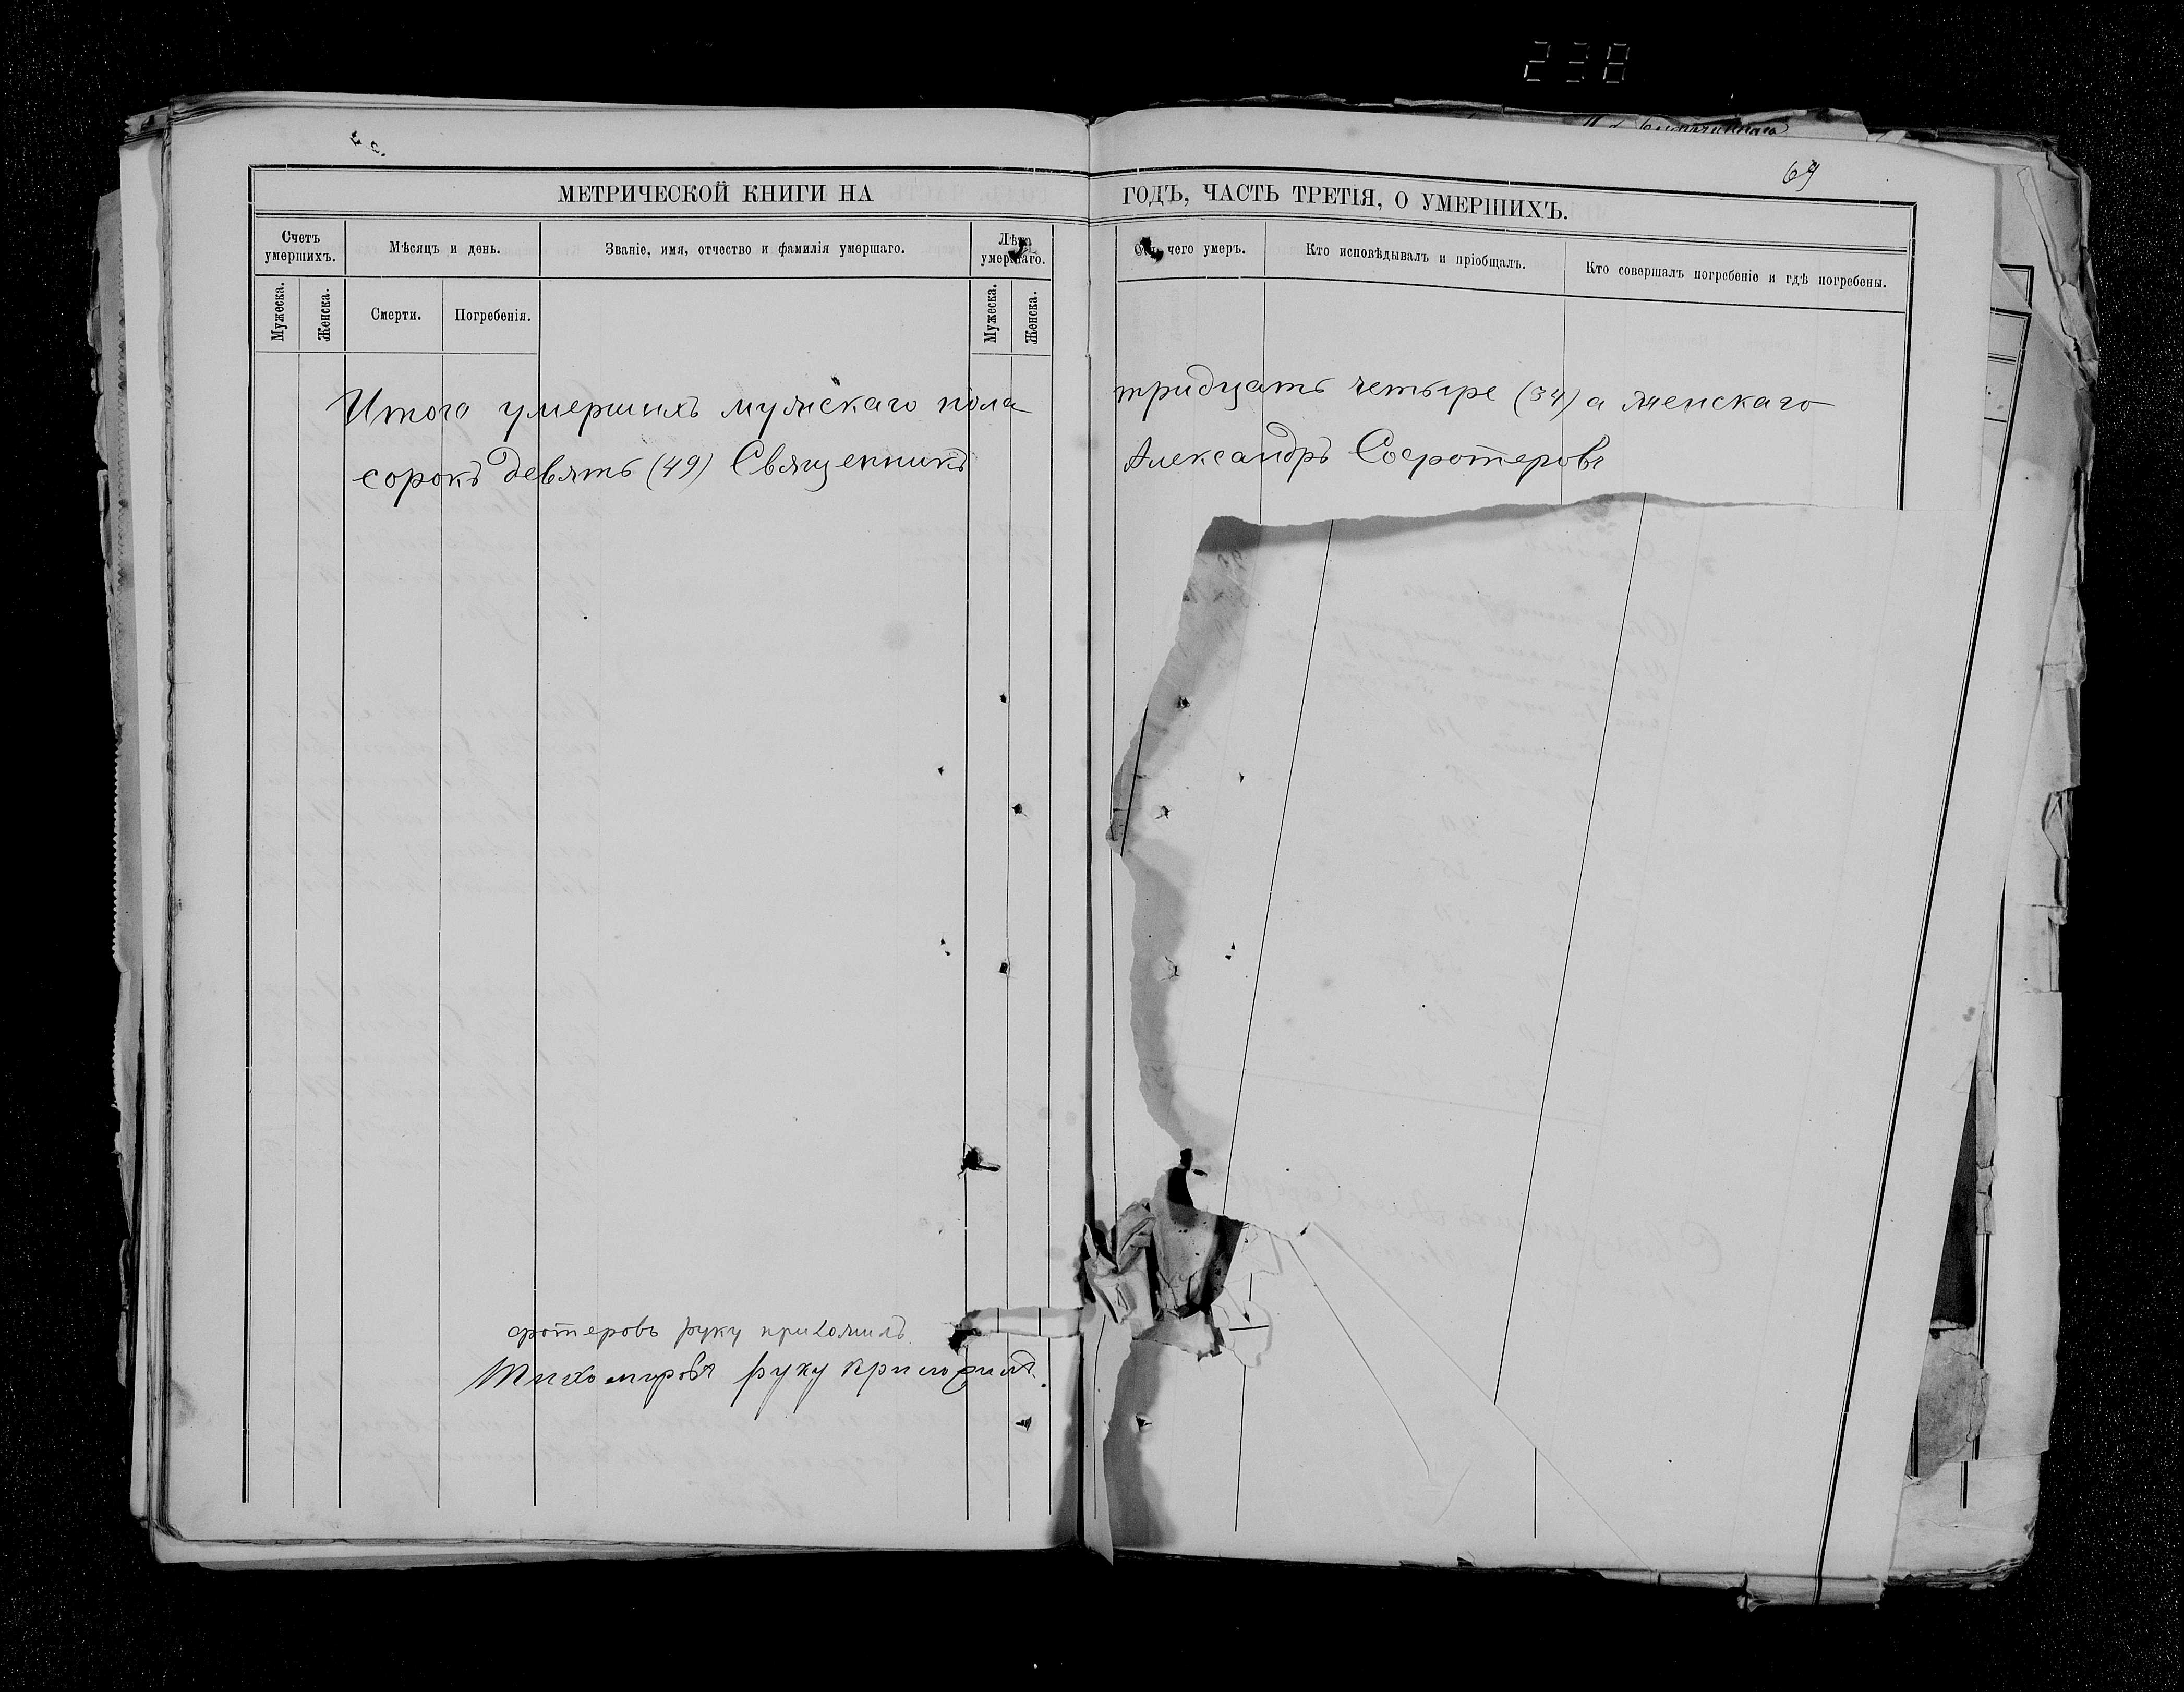 238
69
МЕТРИЧЕСКОЙ КНИГИ НА ГОДЪ, ЧАСТЬ ТРЕТІЯ, О УМЕРШИХЪ.
Счетъ умершихъ.
Мѣсяцъ и день.
Званіе, имя, отчество и фамилія умершаго.
Лѣта умершаго.
Отъ чего умеръ.
Кто исповѣдывалъ и пріобщалъ.
Кто совершалъ погребеніе и гдѣ погребены.
Мужеска.
Женска.
Смерти.
Погребенія.
Мужеска.
Женска.
Итого умершихъ мужскаго пола тридцать четыре (34) а женскаго
сорокъ девять (49) Священникъ Александръ Сосфотеровъ
фотеровъ руку приложилъ.
Тихомировъ руку приложилъ.